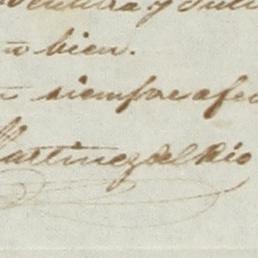 ventura y
bien.
siempre afec
Martinez del Rio